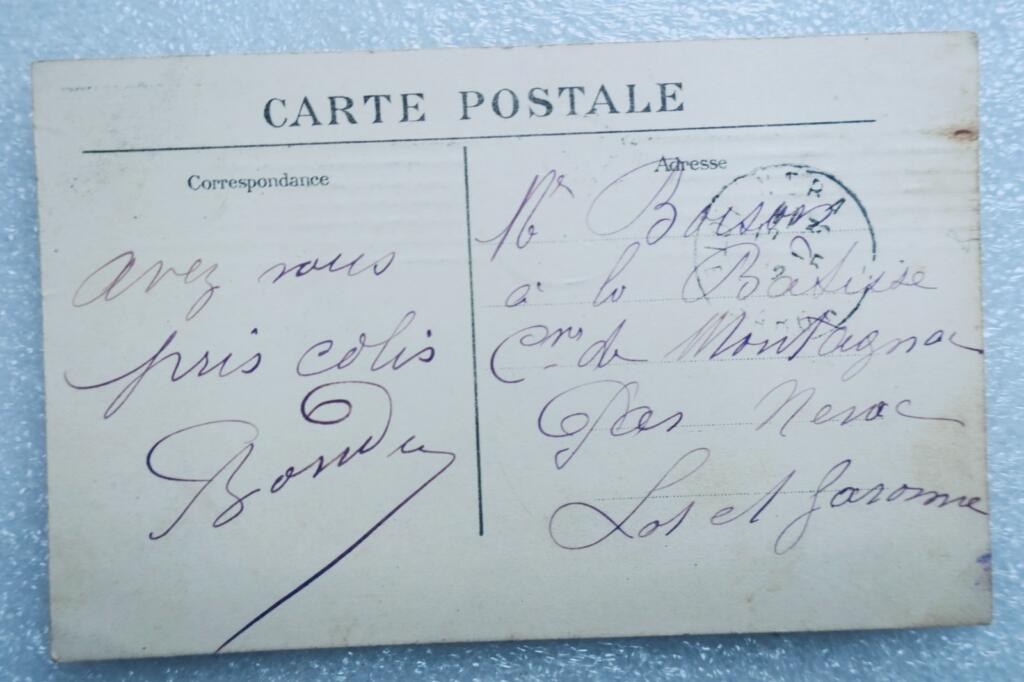 CARTE POSTALE
Correspondance
avez vous
pris colis
Adresse
Mr Boisson
à la Batisse
Cne de Montagnac
Par Nerac
Lot et Garonne